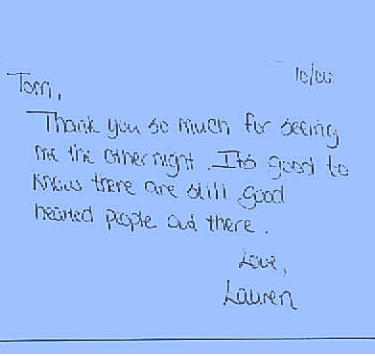 10/06
Torri,
Thank you so much for seeing
me the other night. Its good to
know there are still good
hearted people out there.
Love,
Lauren